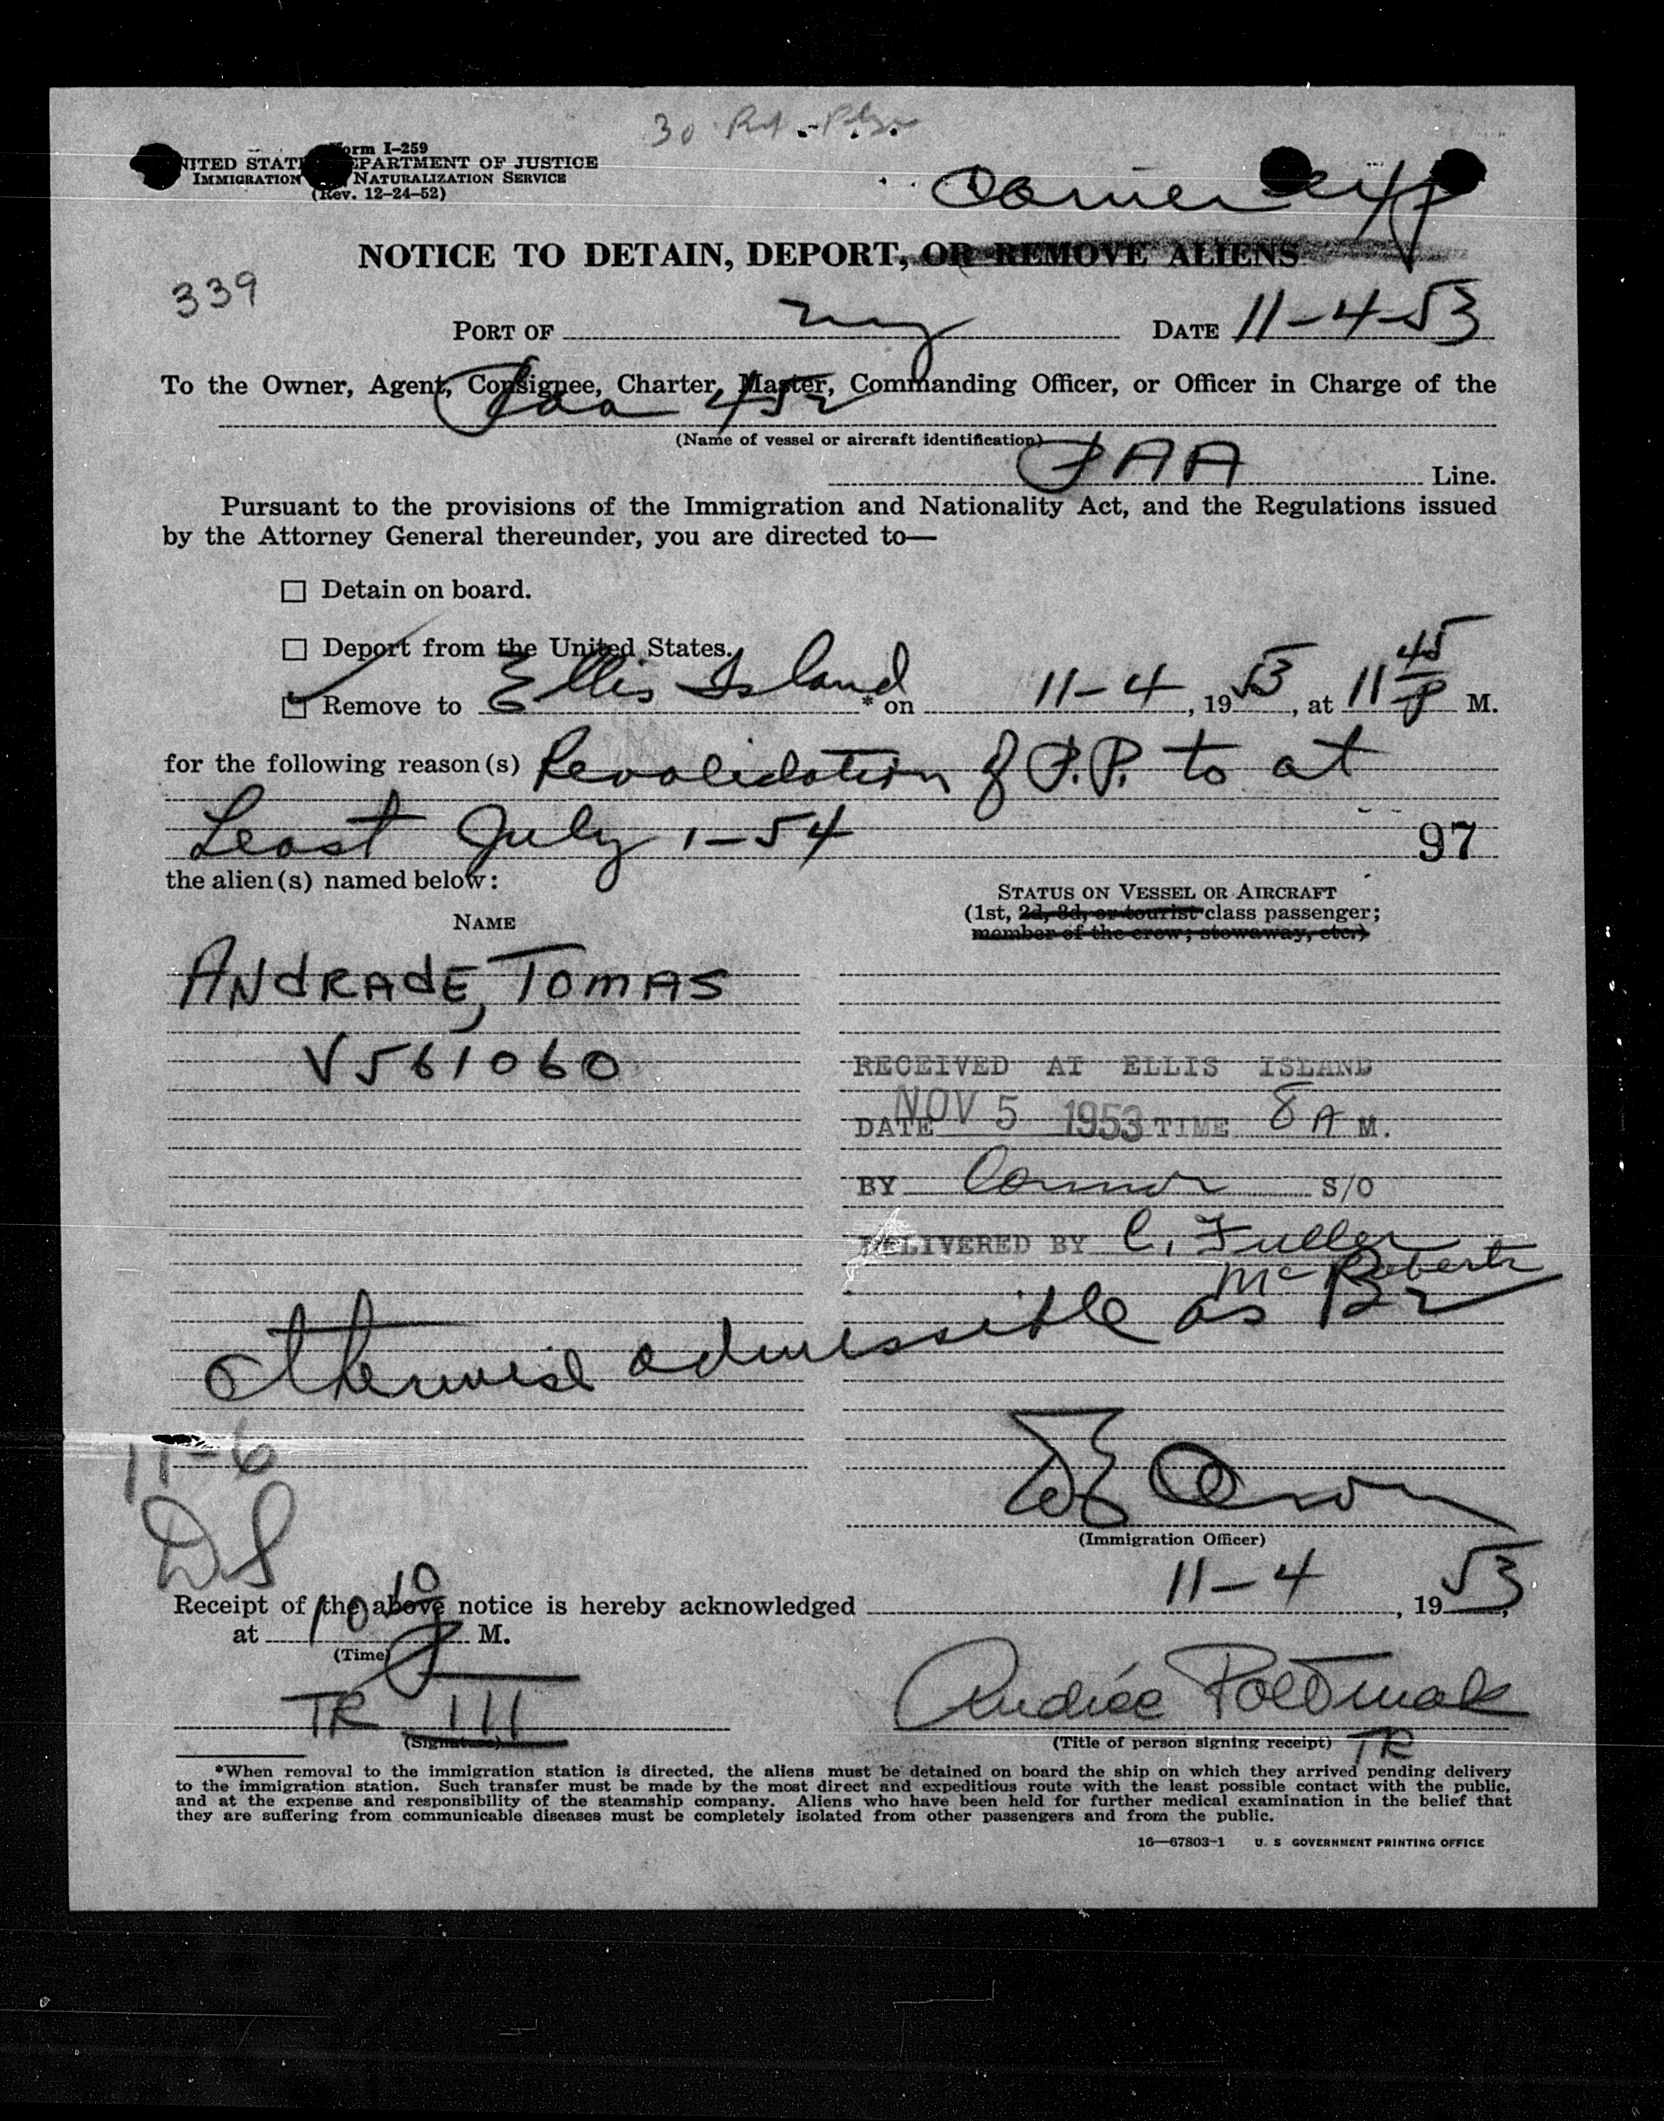 30
Form I-259
UNITED STATES DEPARTMENT OF JUSTICE
IMMIGRATION NATURALIZATION SERVICE
(Rev. 12-24-52)
Carrier exp
NOTICE TO DETAIN, DEPORT, OR REMOVE ALIENS
339
PORT OF ny DATE 11-4-53
To the Owner, Agent, Consignee, Charter, Master, Commanding Officer, or Officer in Charge of the
Paa 452
(Name of vessel or aircraft identification)
PAA Line.
Pursuant to the provisions of the Immigration and Nationality Act, and the Regulations issued
by the Attorney General thereunder, you are directed to—
☐ Detain on board.
☐ Deport from the United States.
☑ Remove to Ellis Island * on 11-4, 1953, at 11 45 P M.
for the following reason(s) Revalidation of P.P. to at
Least July 1-54
97
the alien(s) named below:
STATUS ON VESSEL OR AIRCRAFT
NAME
(1st, 2d, 3d, or tourist class passenger;
member of the crew; stowaway, etc.)
ANdRAdE, TOMAS
V561060
RECEIVED AT ELLIS ISLAND
DATE NOV 5 1953 TIME 8 A M.
BY Connor S/O
DELIVERED BY C. Fuller
McRoberts
otherwise admissible as B2
11-6
DS
(Immigration Officer)
Receipt of the above notice is hereby acknowledged 11-4, 1953,
at 10 10 P M.
(Time)
TR 111
(Signature)
Andrée
(Title of person signing receipt) TR
*When removal to the immigration station is directed, the aliens must be detained on board the ship on which they arrived pending delivery
to the immigration station. Such transfer must be made by the most direct and expeditious route with the least possible contact with the public,
and at the expense and responsibility of the steamship company. Aliens who have been held for further medical examination in the belief that
they are suffering from communicable diseases must be completely isolated from other passengers and from the public.
16—67803-1 U. S GOVERNMENT PRINTING OFFICE